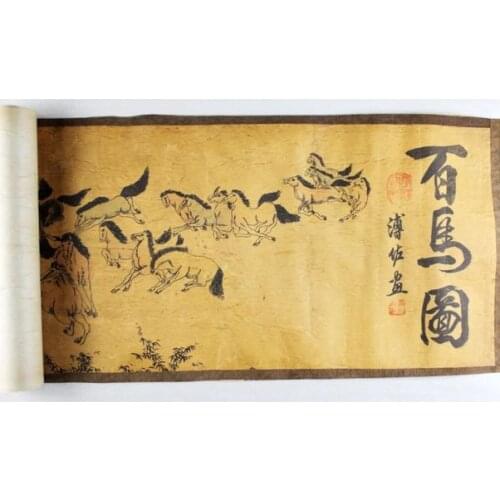 百馬圖
溥佐畫